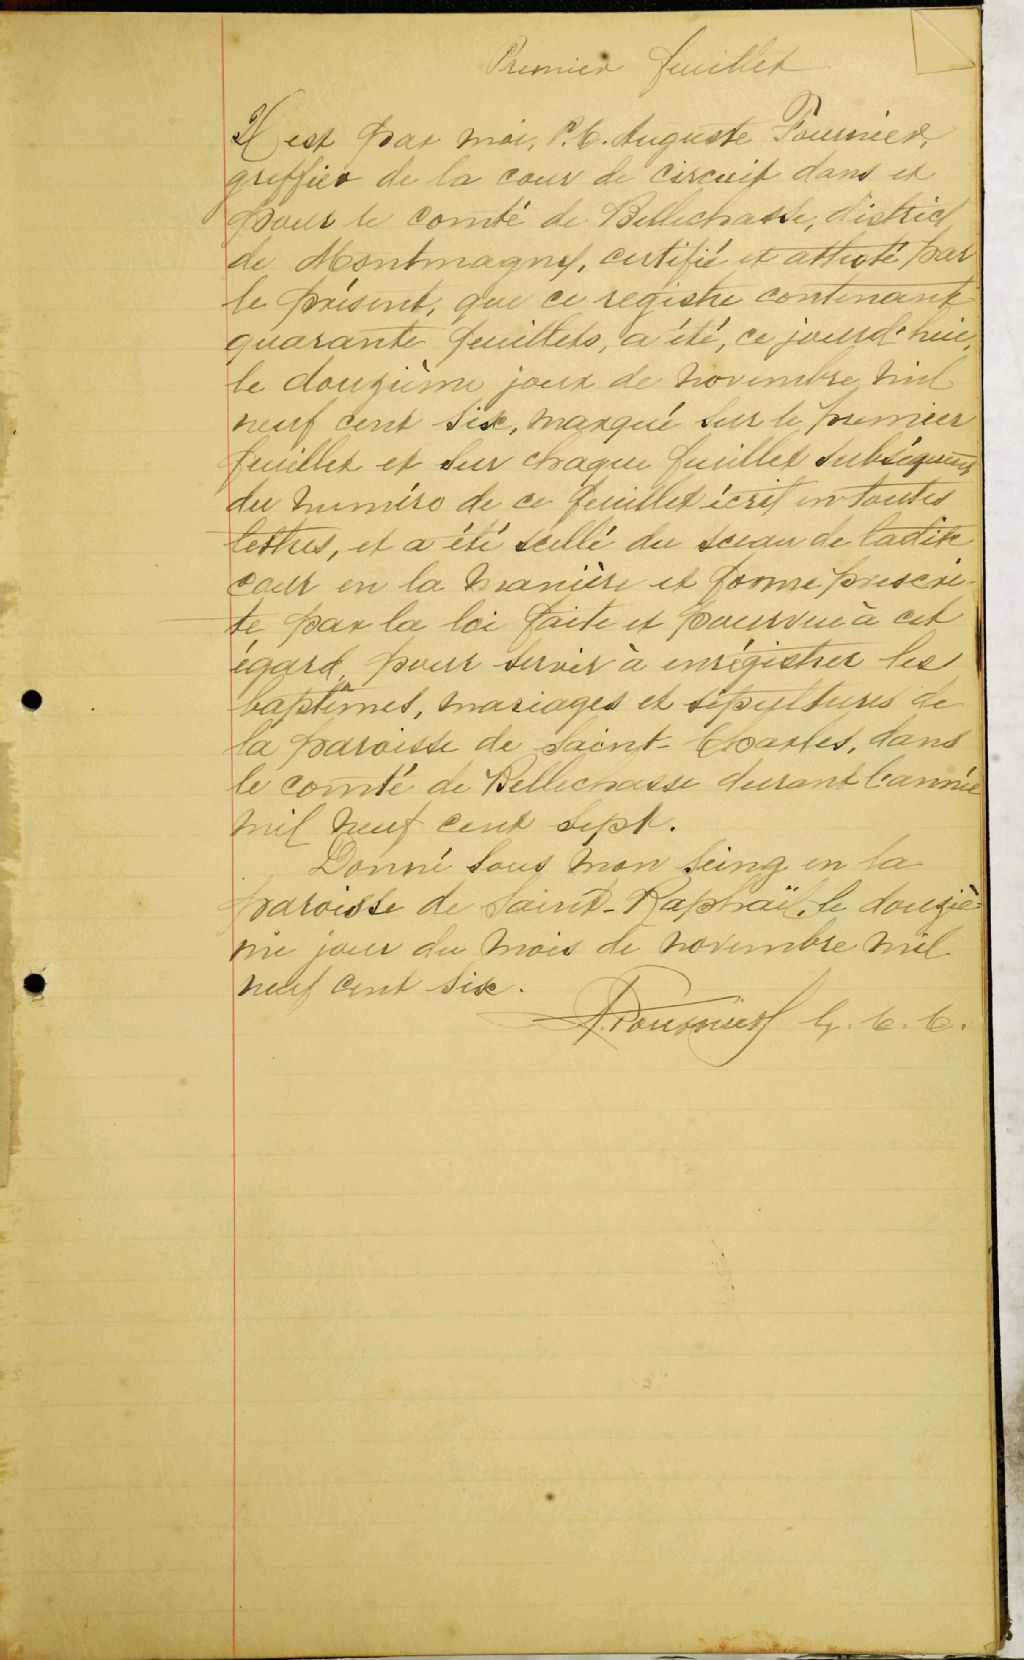 Premier feuillet
Il est par moi, P. C. Auguste Fournier,
greffier de la cour de circuit dans et
pour le comté de Bellechasse, district
de Montmagny, certifié et attesté par
le présent, que ce registre contenant
quarante feuillets, a été, ce jourd'hui,
le douzième jour de novembre mil
neuf cent six, marqué sur le premier
feuillet et sur chaque feuillet subséquent
du numéro de ce feuillet écrit en toutes
lettres, et a été scellé du sceau de ladite
cour en la manière et forme prescri-
te par la loi faite et pourvue à cet
égard, pour servir à enrégistrer les
baptêmes, mariages et sépultures de
la paroisse de Saint-Charles, dans
le comté de Bellechasse durant l'année
mil neuf cent sept.
Donné sous mon seing en la
paroisse de Saint-Raphaël, le douziè-
me jour du mois de novembre mil
neuf cent six.
A. Fournier G. C. C.